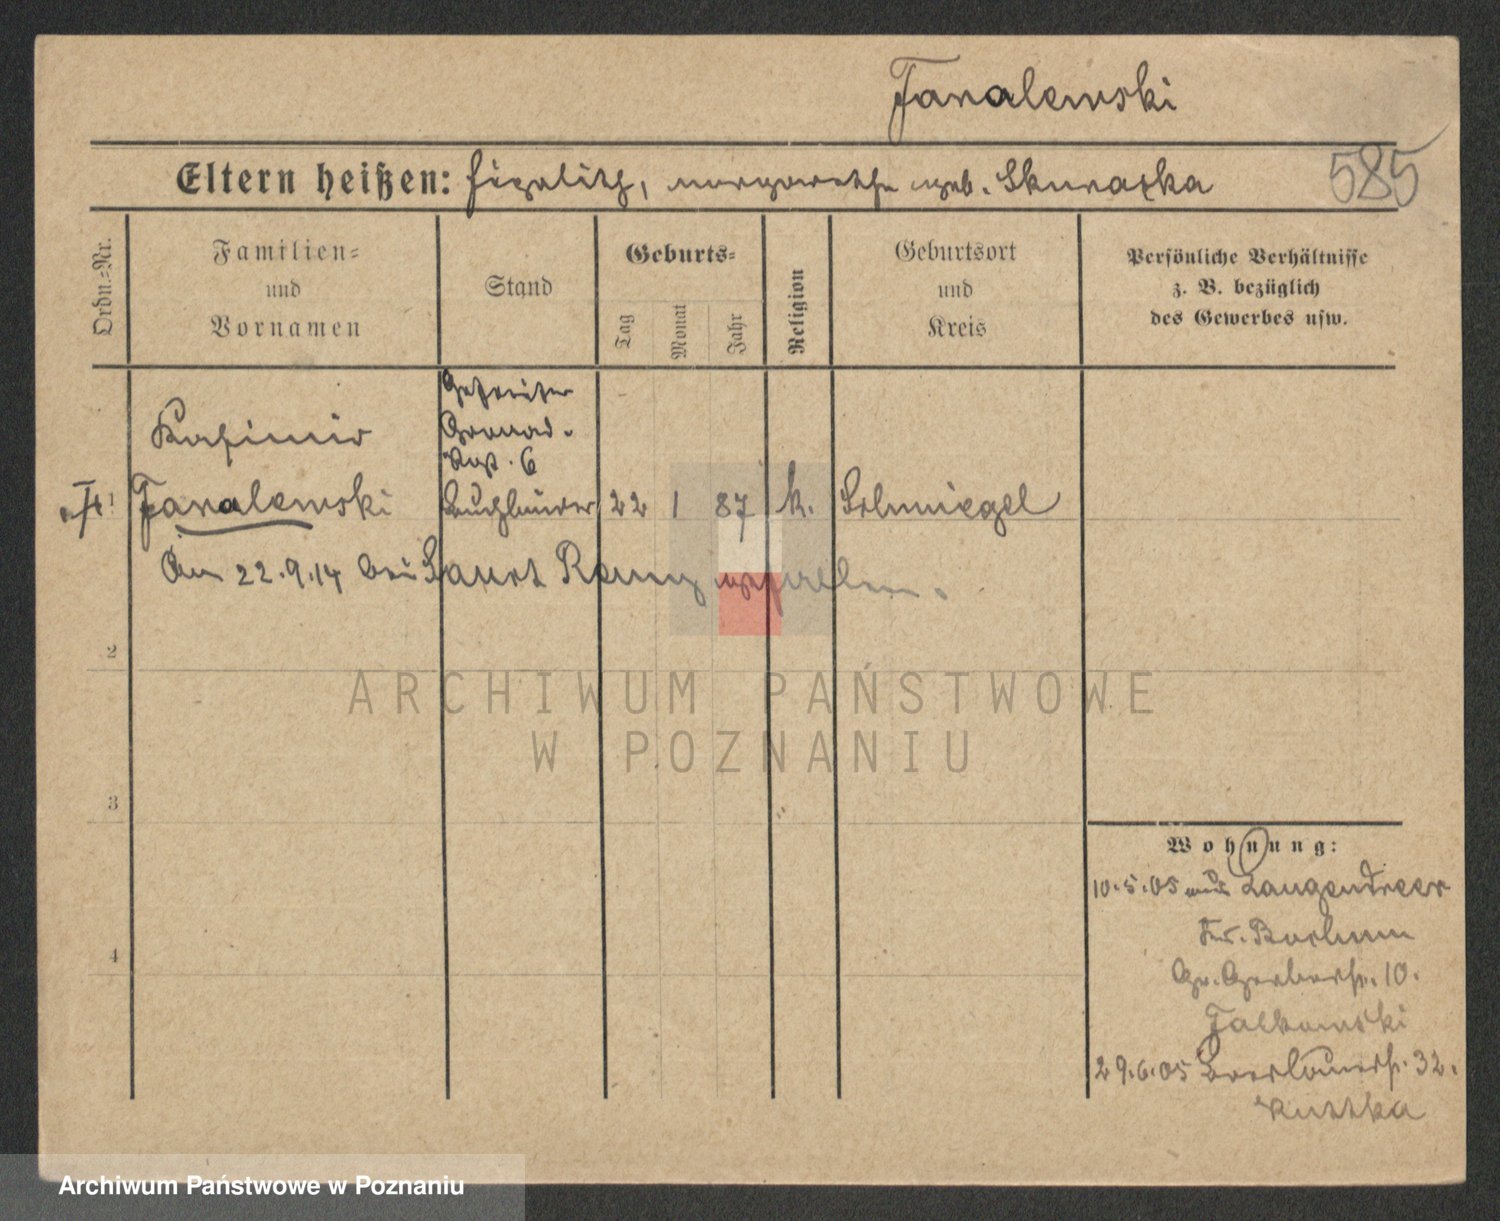 Fanalewski
Eltern heißen: Hippolith, Margarethe geb. Skuraska
585
Ordn.=Nr.
Familien=
und
Vornamen
Stand
Geburts=
Tag
Monat
Jahr
Religion
Geburtsort
und
Kreis
Persönliche Verhältnisse
z. B. bezüglich
des Gewerbes usw.
Gefreiter
Kasimir
Grenad.
Rgt. 6
1
Fanalewski
Buchbinder
22
1
87
k.
Schmiegel
Am 22.9.14 bei Sanct Remy gefallen.
2
3
4
Wohnung:
10.5.05 aus Langendreer
Kr. Bochum
Gr. Gerberstr. 10.
Falkowski
29.6.05 Breslauerstr. 32.
ARCHIWUM PAŃSTWOWE
W POZNANIU
Archiwum Państwowe w Poznaniu